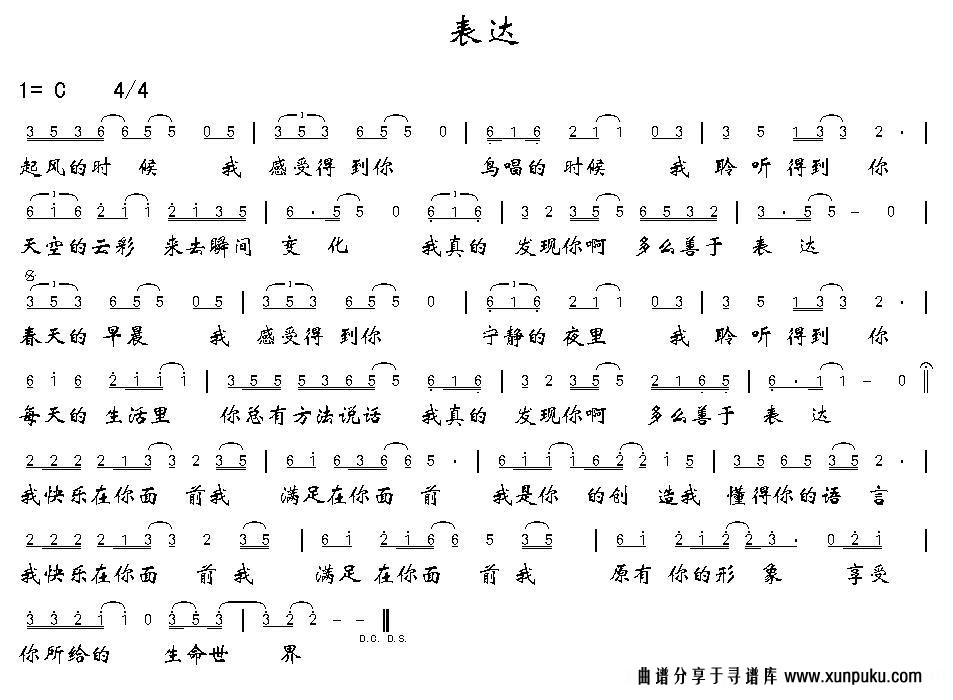 表达
1= C 4/4
3 5 3 6 6 5 5 0 5 | 3 5 3 6 5 5 0 | 6 1 6 2 1 1 0 3 | 3 5 1 3 3 2 · |
起风的时 候 我 感受得 到你 鸟唱的 时候 我 聆 听 得到 你
6 i 6 2 i i 2 i 3 5 | 6 · 5 5 0 6 1 6 | 3 2 3 5 5 6 5 3 2 | 3 · 5 5 – 0 |
天空的云彩 来去瞬间 变 化 我真的 发现你啊 多么善于 表 达
3 5 3 6 5 5 0 5 | 3 5 3 6 5 5 0 | 6 1 6 2 1 1 0 3 | 3 5 1 3 3 2 · |
春天的 早晨 我 感受得 到你 宁静的 夜里 我 聆 听 得到 你
6 i 6 2 i i i | 3 5 5 5 5 3 6 5 5 6 1 6 | 3 2 3 5 5 2 1 6 5 | 6 · 1 1 – 0 ‖
每天的 生活里 你总有方法说话 我真的 发现你啊 多么善于 表 达
2 2 2 2 1 3 3 2 3 5 | 6 i 6 3 6 6 5 · | 6 i i i 6 2 2 i 5 | 3 5 6 5 3 5 2 · |
我快乐在你面 前我 满足在你面 前 我是你 的创 造我 懂得你的语 言
2 2 2 2 1 3 3 2 3 5 | 6 i 2 i 6 6 5 3 5 | 6 i 2 i 2 2 3 · 0 2 i |
我快乐在你面 前 我 满足 在你面 前 我 原有 你的形 象 享受
3 3 2 i 1 0 3 5 3 | 3 2 2 – – ‖
D.C. D.S.
你所给的 生命世 界
曲谱分享于寻谱库 www.xunpuku.com